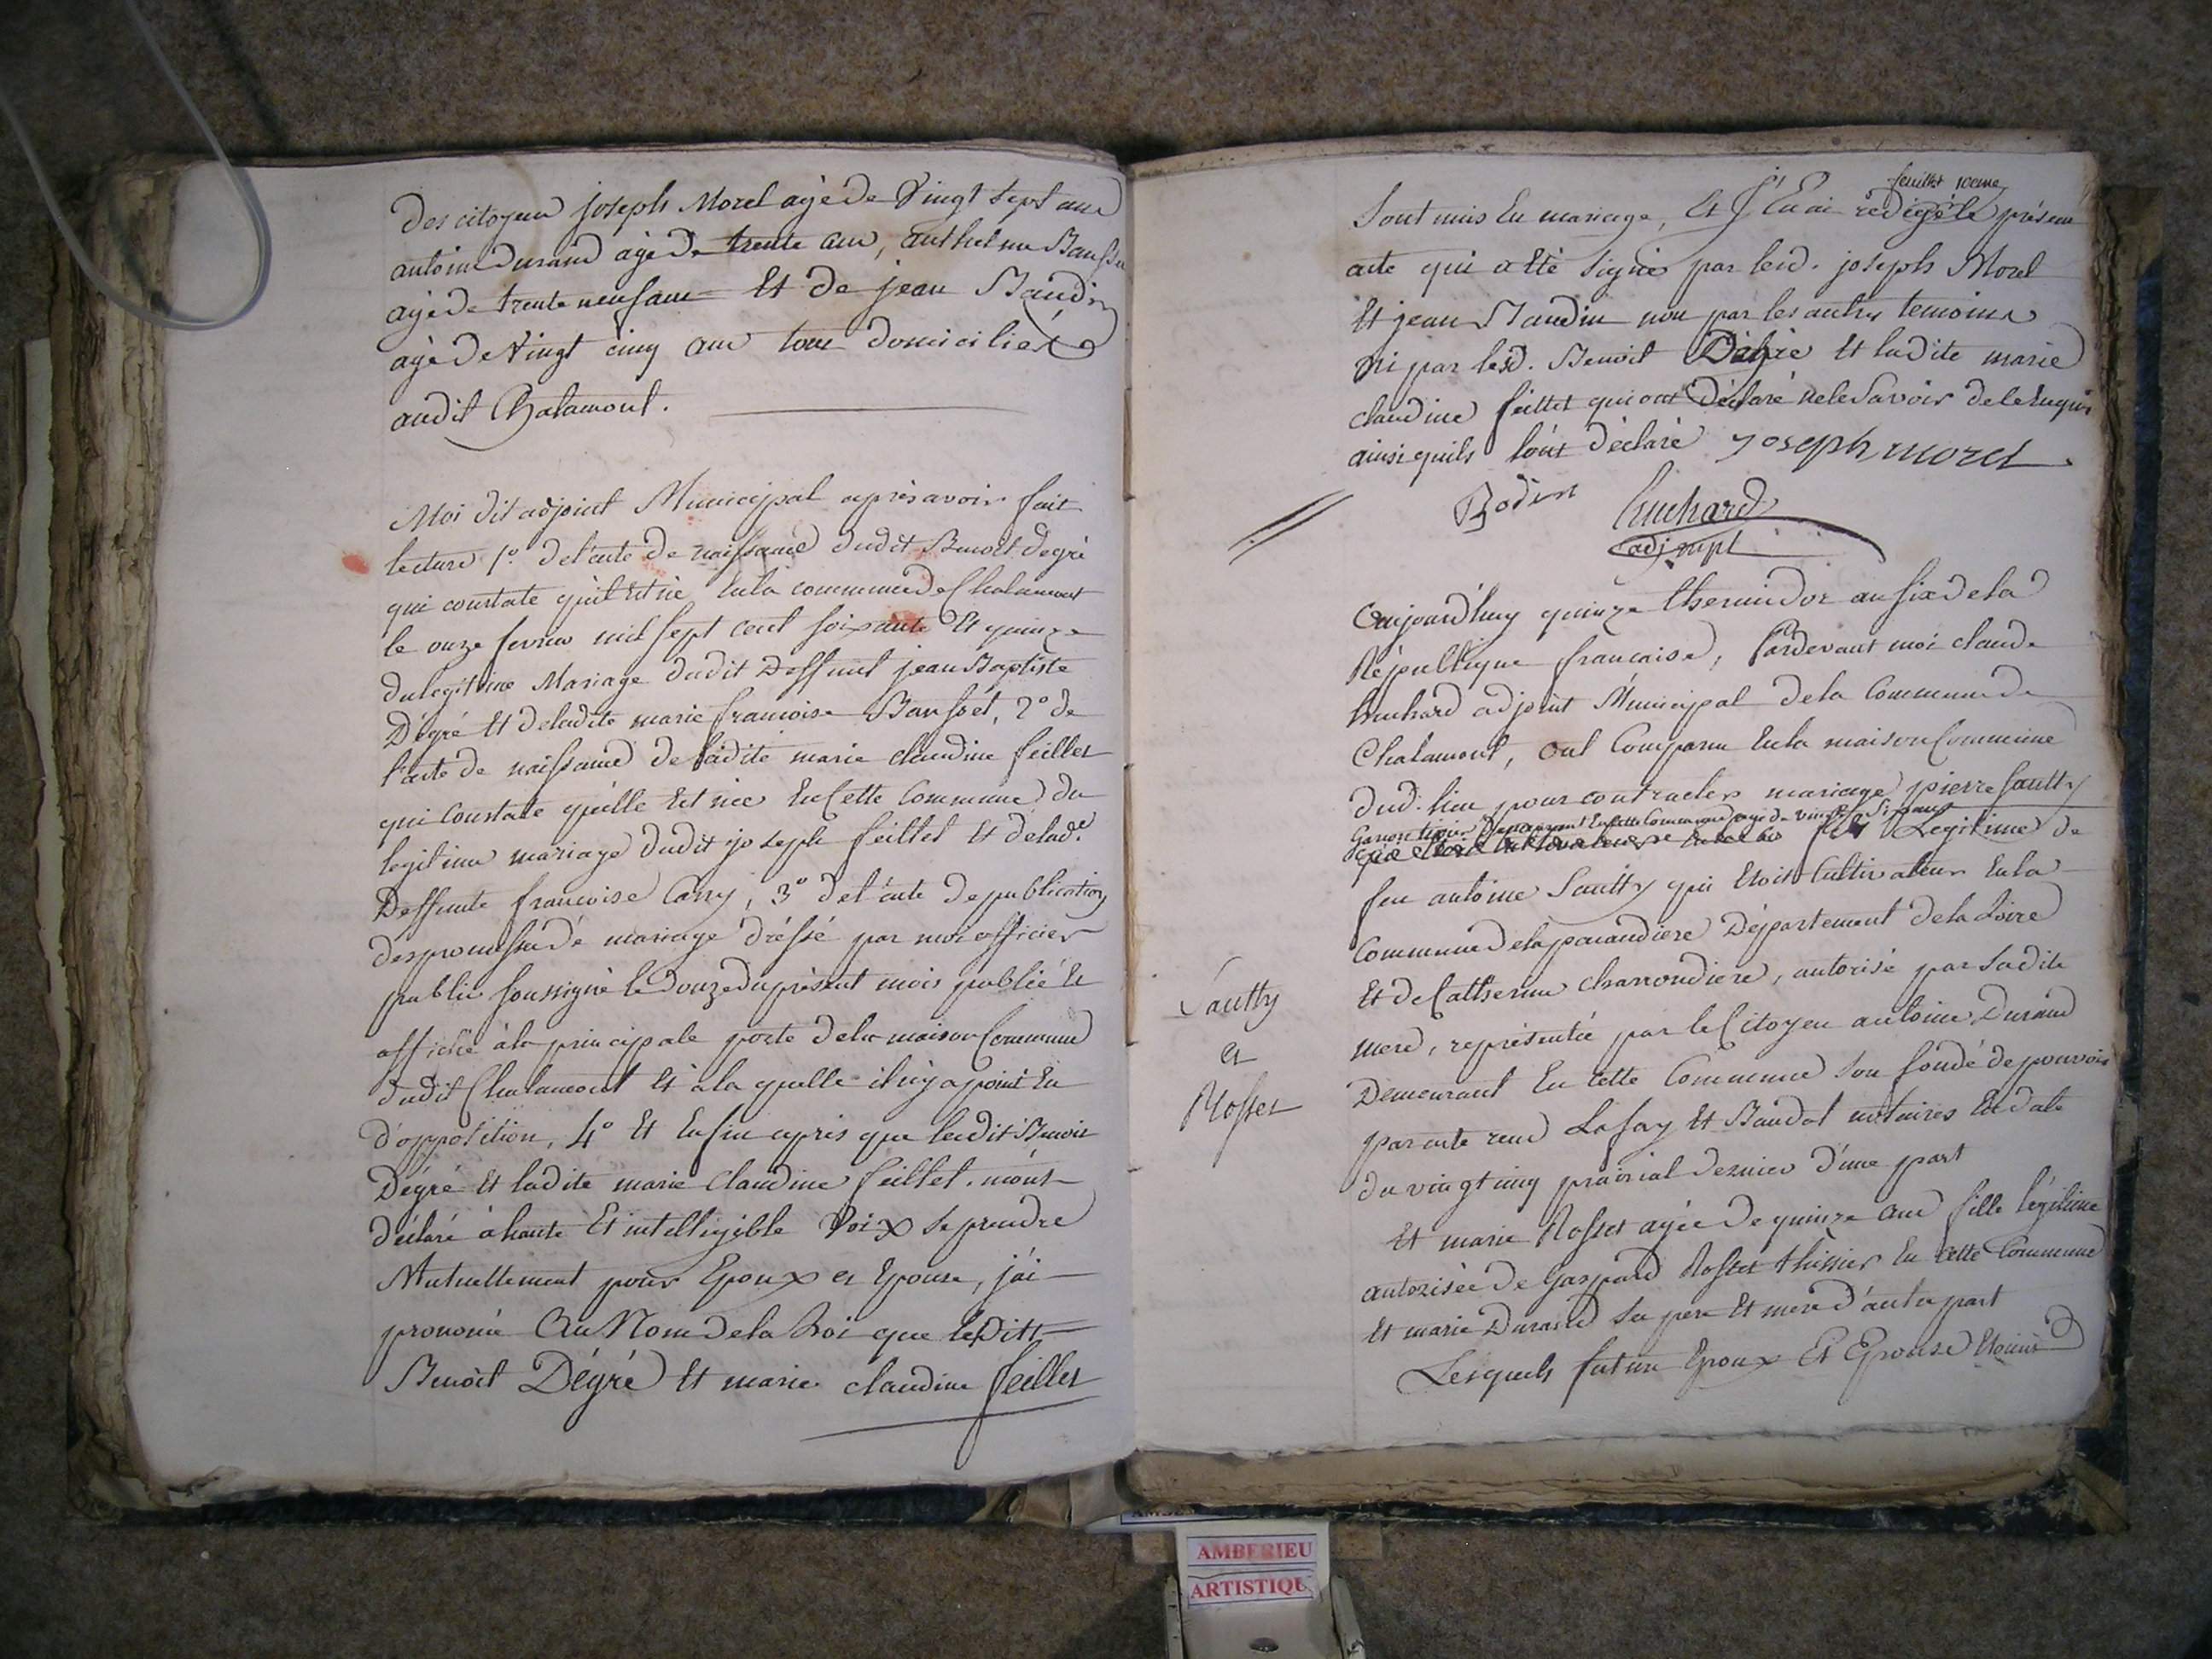 Des citoyens joseph Morel agé de Vingt sept ans
antoine Durand agé de trente ans, anthelme Banssu
agé de trente neuf ans Et de jean Baudin
agé de Vingt cinq ans tous domiciliés
audit Chalamont.
Moi dit adjoint Municipal après avoir fait
lecture 1°. de l'acte de naissance dudit Benoit degré
qui constate qu'il Est né En la commune de Chalamont
le onze fevrier mil sept cent soixante Et quinze
du legitime Mariage dudit Deffunt jean Baptiste
Dégré Et de ladite marie francoise Bansset, 2° de
l'acte de naissance de ladite marie claudine feillet
qui Constate quelle Est née En Cette Commune du
legitime mariage dudit joseph feillet Et de lade
Deffunte francoise Carry, 3° de l'acte de publication
des promesses de mariage dréssé par moi officier
public soussigné le douze du présent mois publié Et
affiché à la principale porte de la maison Commune
dudit Chalamont Et à la quelle il n'y a point Eu
d'opposition, 4° Et Enfin après que ledit Benoit
Dégré Et ladite marie Claudine feillet. m'ont
déclaré à haute Et intelligible Voix se prendre
Mutuellement pour Epoux et Epouse, j'ai
prononcé Au Nom de la Loi que le Ditt
Benoit Dégré Et marie claudine feillet
feuillet 10eme
Sont unis En mariage, Et J'En ai redigé le présent
acte qui a Eté signé par lesd. joseph Morel
Et jean Baudin non par les autres temoins
ni par lesd. Benoit Dégré Et ladite marie
claudine feillet qui ont Déclaré ne le Savoir de ce Enquis
ainsi quils l'ont déclaré Joseph morel
Bodin Huchard
adj mpl
aujourd'huy quinze thermidor an six de la
République francaise, Pardevant moi claude
huchard adjoint Municipal de la Commune de
Chalamont, ont Comparu En la maison Commune
dud. lieu pour contracter mariage pierre Sautty
Garcon tissier Demeurant En cette Commune agé de vingt Six ans
fils Legitime de
feu antoine Sautty qui Etoit Cultivateur En la
Commune de la pacaudiere Département de la Loire
Et de Catherine charrondiere, autorisé par Sadite
mere, représentée par le Citoyen antoine Durand
Demeurant En cette Commune son fondé de pouvoir
par acte recu Lafay Et Baudot notaires En date
du vingt cinq prairial dernier d'une part
Sautty
et
Rosset
Et marie Rosset agée de quinze ans fille légitime
autorisée de Gaspard Rosset thissier En cette Commune
Et marie Durand Ses pere Et mere d'autre part
Lesquels futurs Epoux Et Epouse Etoient
AMBERIEU
ARTISTIQU